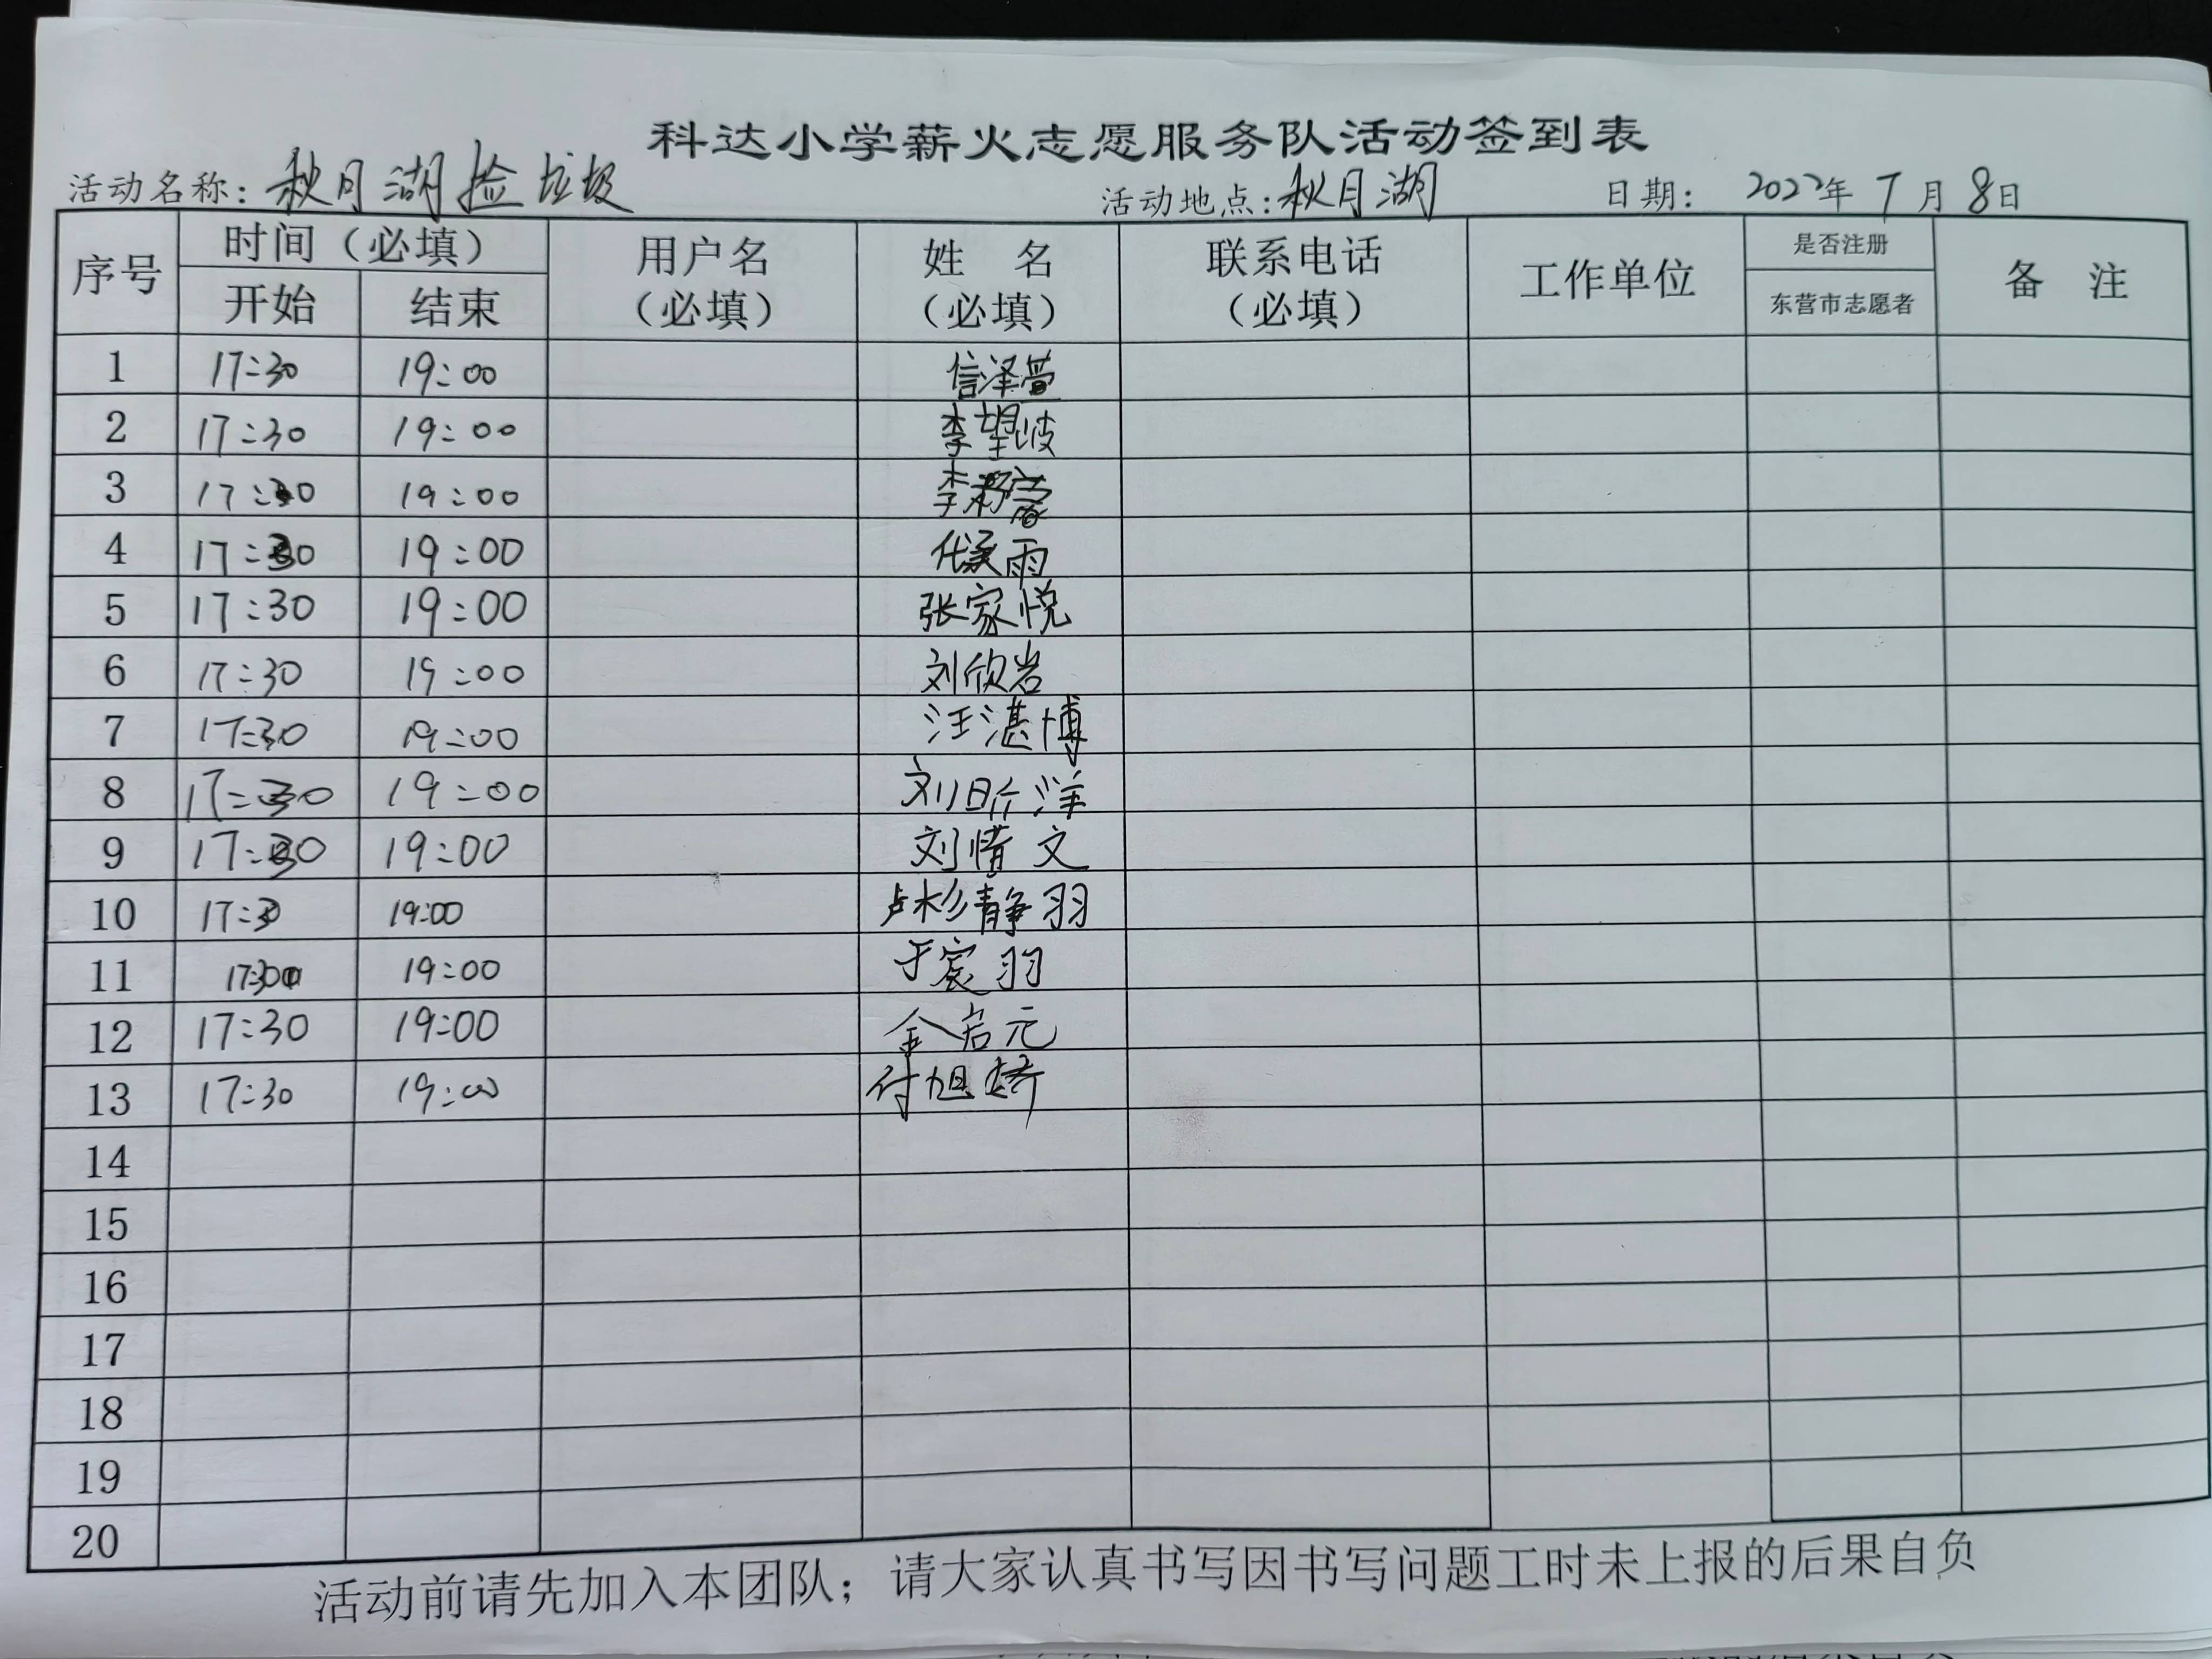 科达小学薪火志愿服务队活动签到表
活动名称: 秋月湖捡垃圾 活动地点: 秋月湖 日期: 2022年 7月 8日
序号 时间（必填） 用户名 姓 名 联系电话 工作单位 是否注册 备 注
开始 结束 （必填） （必填） （必填） 东营市志愿者
1 17:30 19:00 信泽萱
2 17:30 19:00 李望波
3 17:30 19:00 李
4 17:30 19:00 代承雨
5 17:30 19:00 张家悦
6 17:30 19:00 刘欣岩
7 17:30 19:00 汪湛博
8 17:30 19:00 刘昕洋
9 17:30 19:00 刘情文
10 17:30 19:00 卢杉静羽
11 17:30 19:00 于宸羽
12 17:30 19:00 金启元
13 17:30 19:00 付旭娇
14
15
16
17
18
19
20
活动前请先加入本团队；请大家认真书写因书写问题工时未上报的后果自负